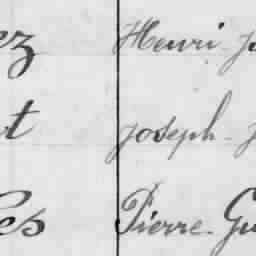 ez Henri
t Joseph
es Pierre Gu